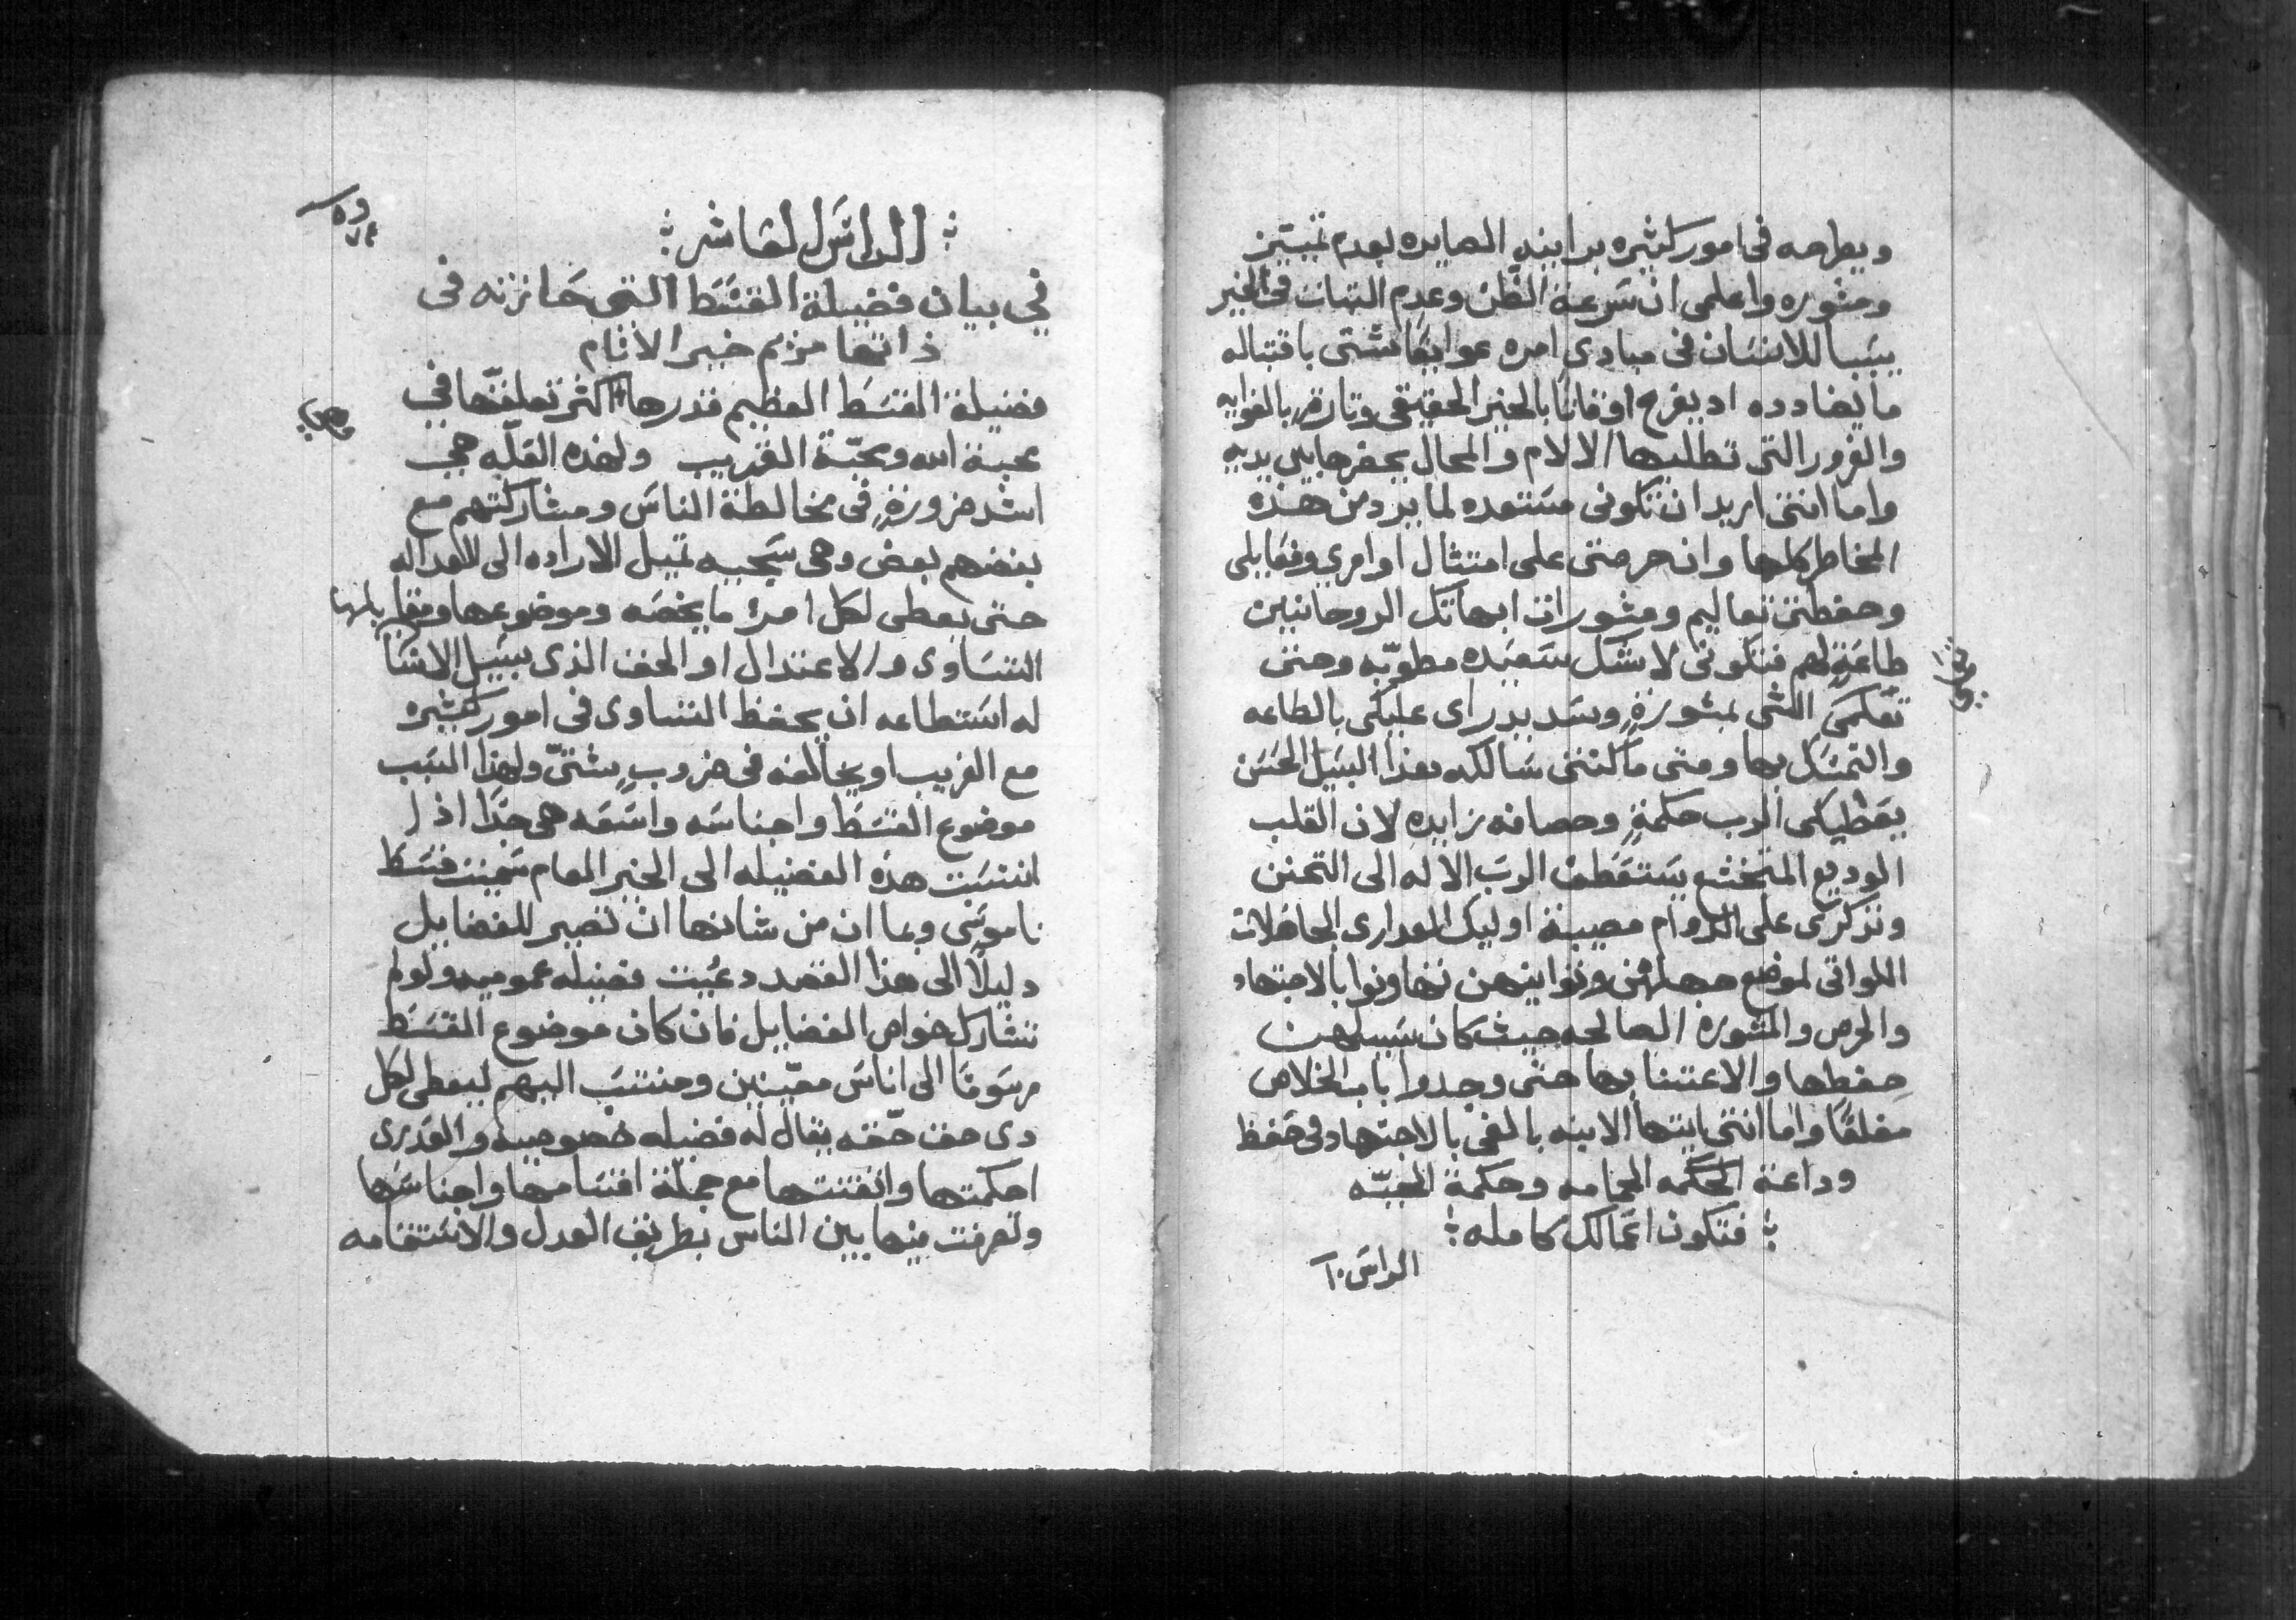 ويطرحه في امور كثيره برابنه الصايره بعدم تمييز
ومشوره واعلمى ان سَرعة الظن وعدم الثبات في الخير
يسَببا للانسَان فى مبادى امره عوايقا شتى باقتباله
ما يضادده اد يفرح اوقاتا بالخير الحقيقى وتارةٍ بالغوايه
والغرور التى تطلبها الالام والمحال يحضرها بين يديه
واما انتى اريد ان تكونى مسَتعده لما يرد من هذه
المخاطر كلها وان حرصتى على امتثال اوامري وفعايلى
وحفظتى تعاليم ومشورات ابهاتك الروحانيين
طاعَةٍ لهم فتكونى لا شك سَعيَده مطوبّه ومتى
تعلمى الشى بمشورةٍ وسَديد راى عليكى بالطاعه
والتمسَك بها ومتى ما كنتى سَالكه بهذا السَبيل الحسَن
يعَطيكى الرب حكمةٍ وحصافه زايده لان القلب
الوديع المتخشع يسَتعَطف الربَ الاله الى التحنن
وتذكرى على الدوام مصيبة اوليك العدارى الجاهلات
اللواتى لموضع جهلهن وتوانيهن تهاونوا بالاجتهاد
والحرص والمشوره الصالحه حيث كان سَبيلهن
حِفظها والاعتنا بها حتى وجدوا باب الخلاص
مغلقًا واما انتى ايتها الابنه بالغى بالاجتهاد فى حَفظ
وداعة الحكمه الحمامه وحكمة الحيّه
فتكون اعَمالك كامله
الراسَ ١٠
الراسَ العَاشر
في بيان فضيلة القسَط التى حَازته فى
ذاتها مريم خير الانام
فضيلة القسَط العظيم قدرها اكثر تعلقّها في
محبة الله ومحبّة القريب ولهذه العَلّه هي
اشد ضرورةٍ فى مخالطة الناسَ ومشاركتهم مع
بعضهم بعض وهى سَجيه تميل الاراده الى العداله
حتى يعطى لكل امرء ما يخصَه وموضوعها ومقابلها
التسَاوى والاعتدال او الحق الذى يسَبيل الانسَان
له اسَتطاعه ان يحفظ التساوى فى امور كثيره
مع القريب او يخالفه فى ضروبٍ شتىّ ولهذا السَبب
موضوع القسَط واجناسَه واسَعَه هى جدًا اذ ا
انتسَبت هذه الفضيله الى الخير العام سَميت قسَط
ناموسَى وبما ان من شانها ان تصير للفضايل
دليلًا الى هذا القصد دعُيت فضيله عموميه ولو لم
تشارك خواص الفضايل فان كان موضوع القسَط
مرسَومًا الى اناسَ معيّنين ومنتسَب اليهم ليعطى لكل
دى حق حّقه يقال له فضيله خصوصيه والعَدرى
احكمتها واتقنتها مع جملّة اقسَامها واجناسَها
وتصرفت فيها بين الناس بطريق العدل والاسَتقامه